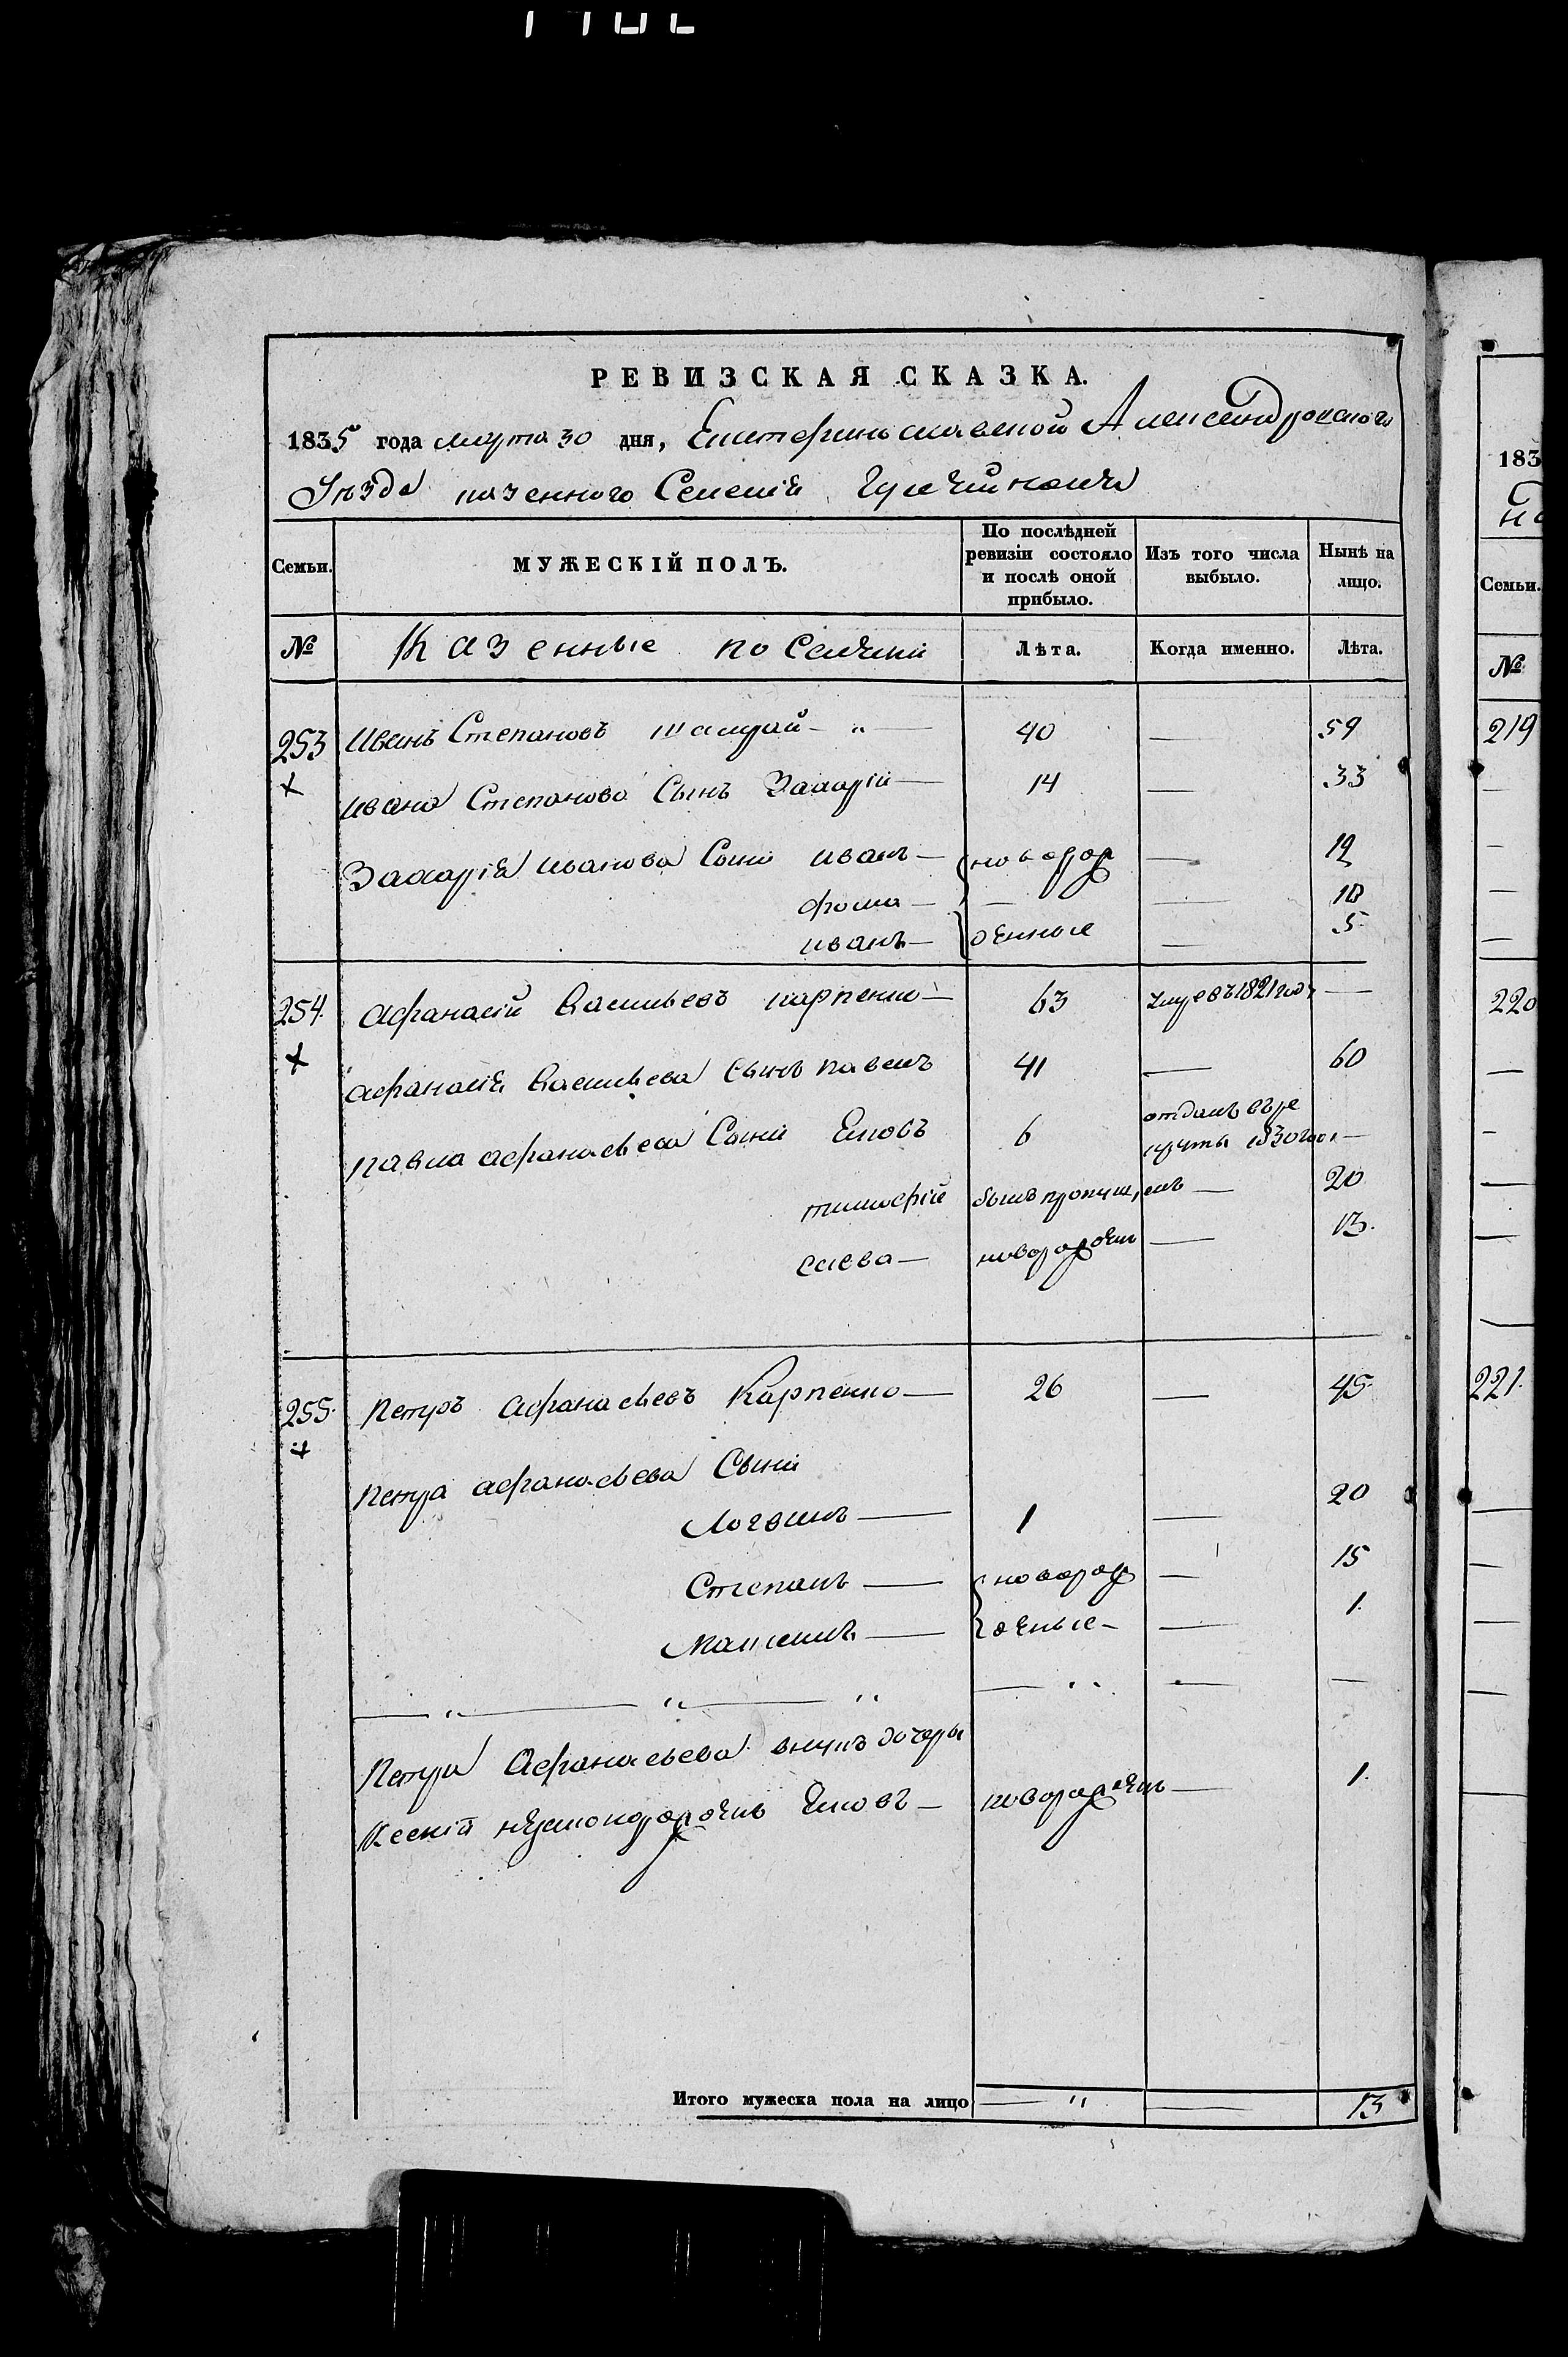 РЕВИЗСКАЯ СКАЗКА.
1835 года марта 30 дня, Екатеринославской Александровского
Уѣзда казенного Селения Гуляйполя
Семьи. МУЖЕСКІЙ ПОЛЪ. По послѣдней ревизіи состояло и послѣ оной прибыло. Изъ того числа выбыло. Нынѣ на лицо.
№ Казенные поселяни Лѣта. Когда именно. Лѣта.
253 Иванъ Степановъ 40 — 59
Ивана Степанова Сынъ Захарій — 14 — 33
Захарія Иванова Сыни Иванъ — новорож — 12
Фома — — — 10
Иванъ — денные — 5.
254. Афанасій Васильевъ Карпенко — 63 умре въ 1821 году —
Афанасія Васильева Сынъ Павелъ 41 — 60
Павла Афанасьева Сыни Яковъ 6 отданъ въ ре
круты 1830 год. —
Тимофій былъ пропущенъ — 20
Савва — новорожденъ — 13.
255. Петръ Афанасьевъ Карпенко — 26 — 45
Петра Афанасьева Сыни
Логвинъ — 1 — 20
Степанъ — новорож — 15
Максимъ — денные — — 1.
Петра Афанасьева внукъ дочери
новорожденъ — 1.
Яковъ —
Итого мужеска пола на лицо — " — 13
183
Семьи.
№
219
220
221.